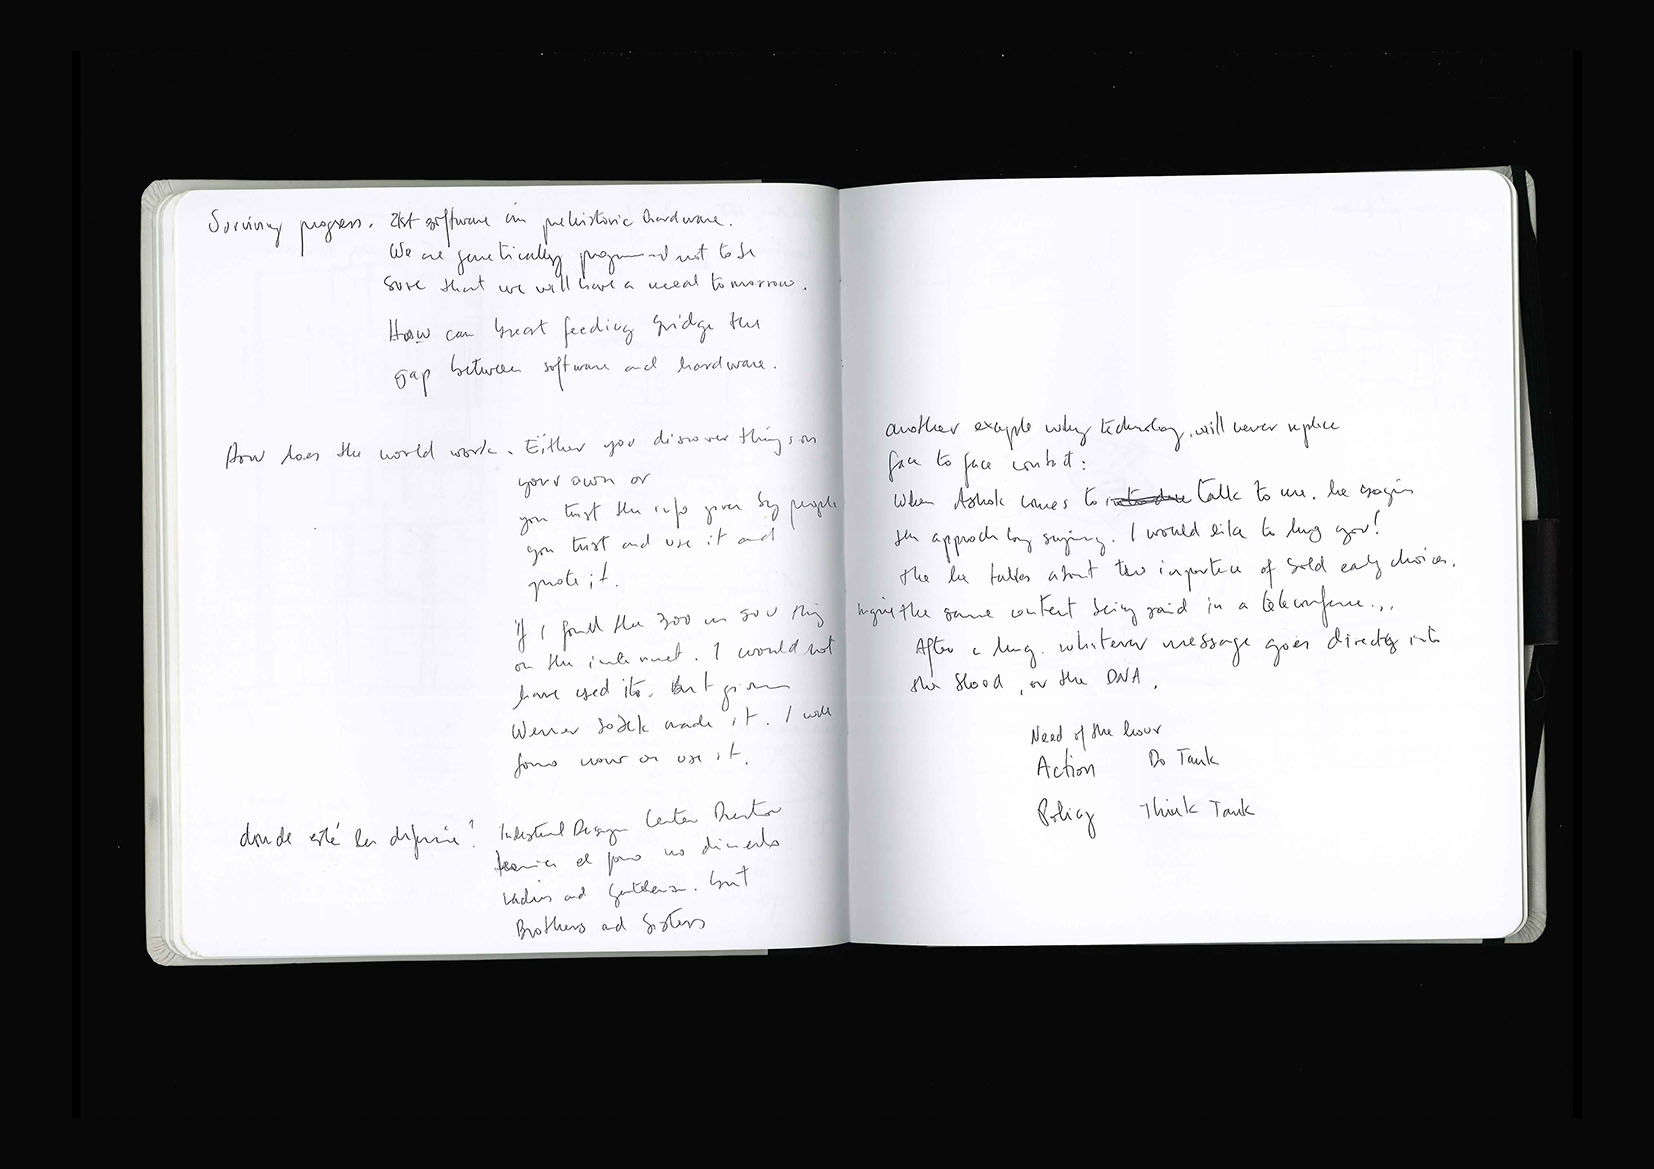 Surviving progress. 21st software in prehistoric hardware.
We are genetically programed not to be
sure that we will have a meal tomorrow.
How can breast feeding bridge the
gap between software and hardware.
How does the world work. Either you discover things on
your own or
you trust the info given by people
you trust and use it and
quote it.
If I found the 300 on thing
on the internet. I would not
have used it. But given
Werner Sobek made it. I will
now or use it.
donde esté la
Industrial Design Center Director
el pero no
Ladies and Gentlemen. but
Brothers and Sisters
another example why technology, will never replace
face to face contact:
When Ashok comes to talk to me. he begins
the approach by saying. I would like to hug you!
the he talks about the importance of bold early choices.
the same content being said in a teleconference...
After a hug. whatever message goes directly into
the blood, or the DNA.
Need of the hour
Action Do Tank
Policy Think Tank